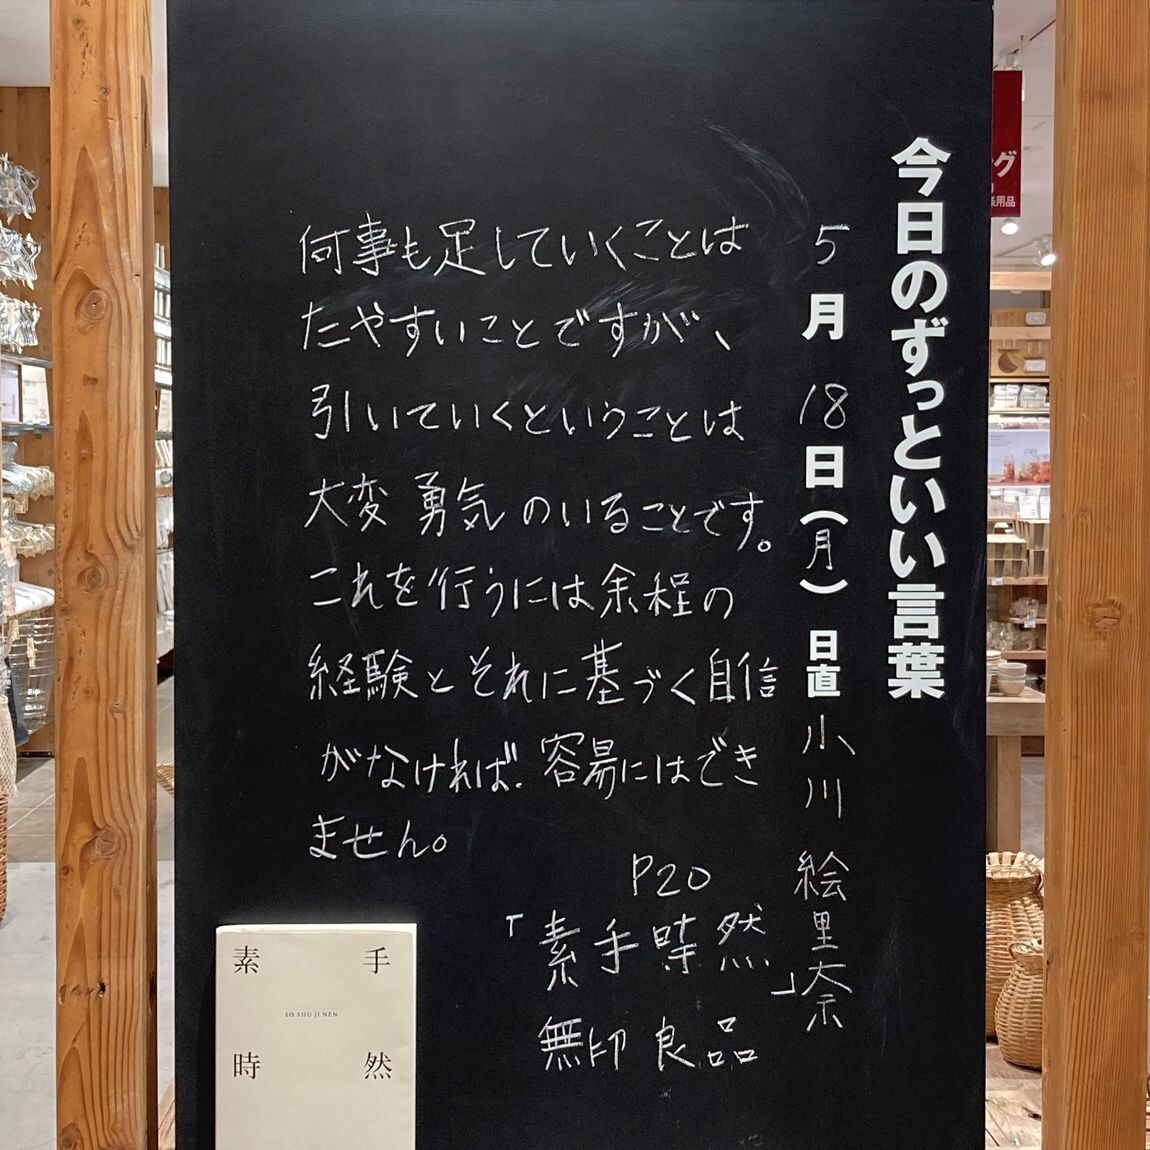 今日のずっといい言葉
5月18日(月) 日直 小川 絵里奈
何事も足していくことは
たやすいことですが、
引いていくということは
大変 勇気のいることです。
これを行うには余程の
経験とそれに基づく自信
がなければ、容易にはでき
ません。
P20
「素手時然」
無印良品
素 手
SO SHU JI NEN
時 然